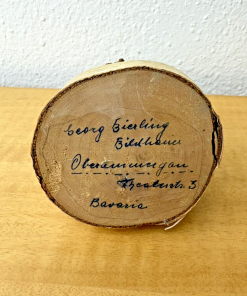 Georg Bierling
Bildhauer
Oberammergau
Theaterstr. 3
Bavaria